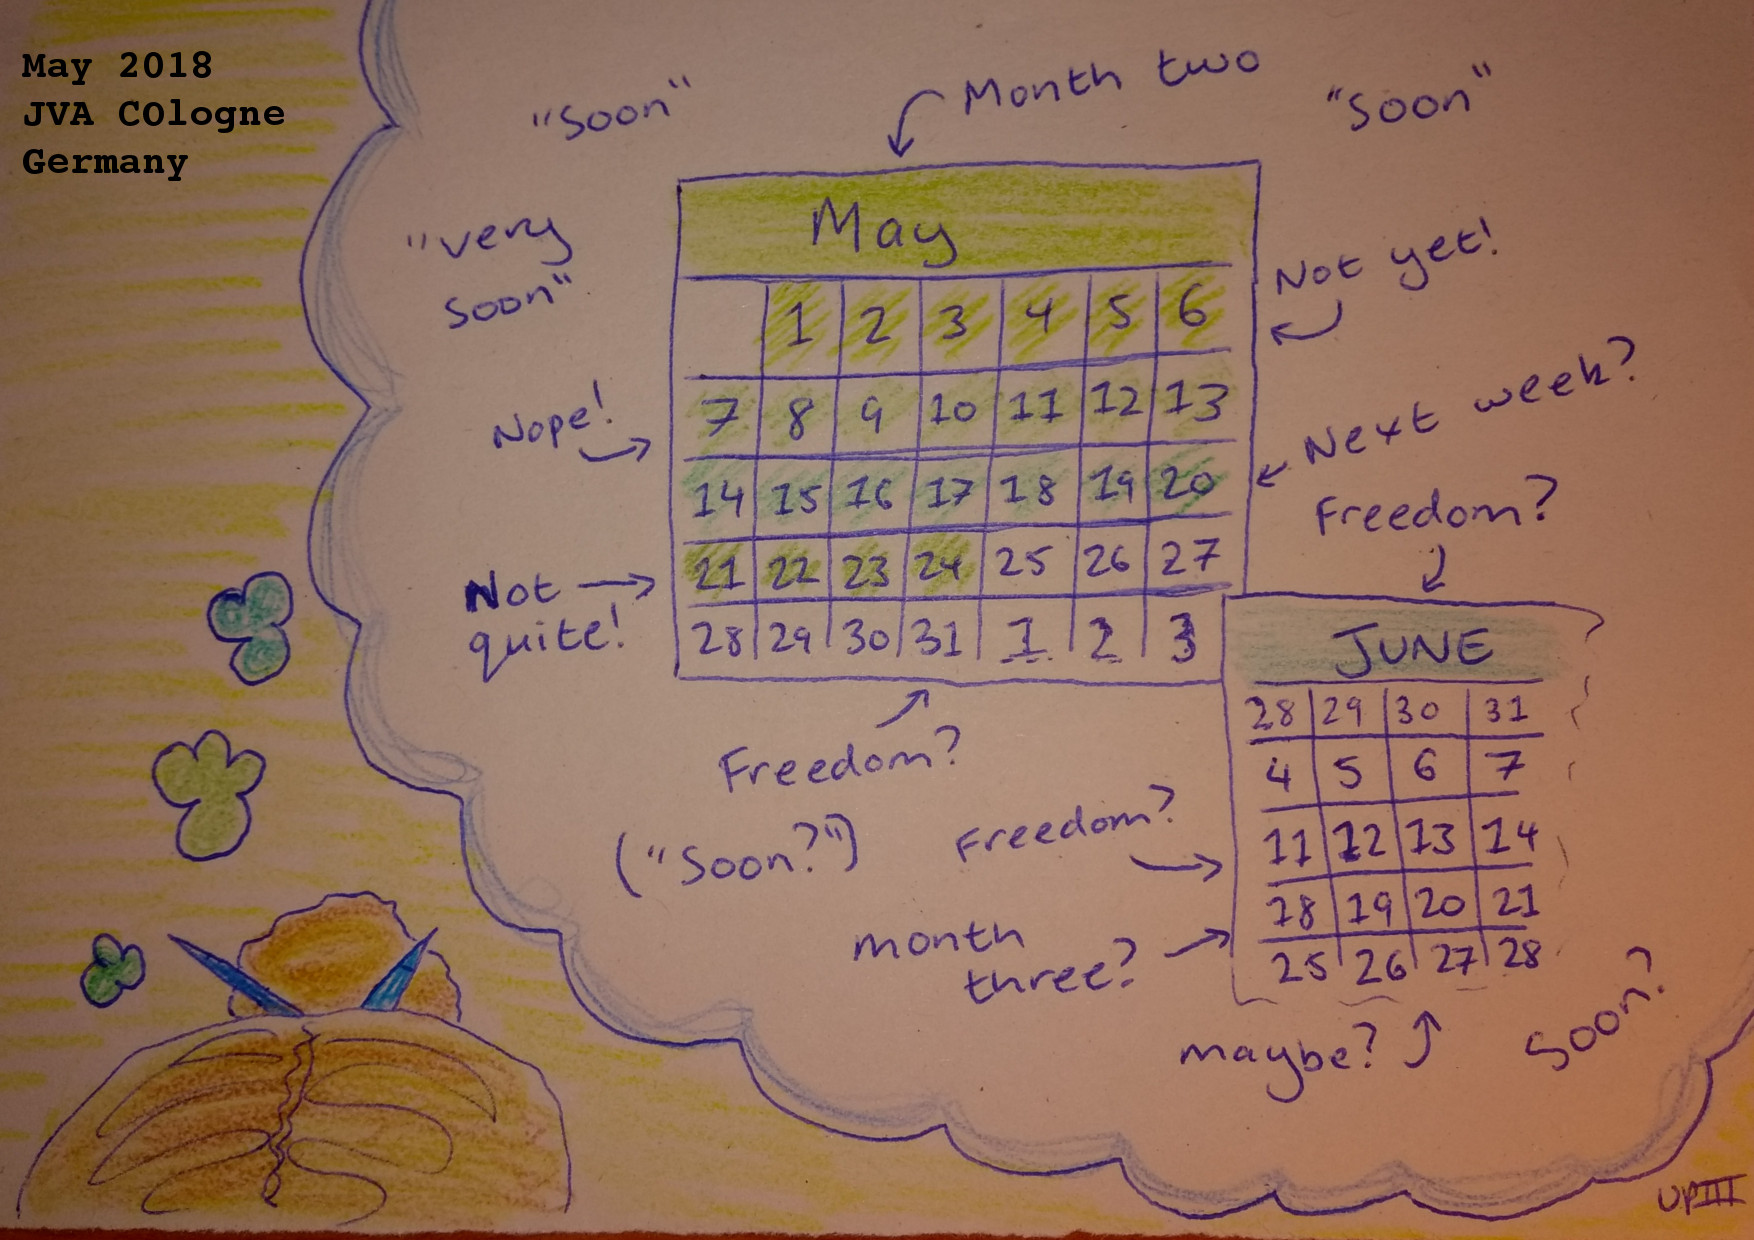 May 2018
JVA COlogne
Germany
"Soon"
Month two
"Soon"
"very
soon"
May
1 2 3 4 5 6
7 8 9 10 11 12 13
14 15 16 17 18 19 20
21 22 23 24 25 26 27
28 29 30 31 1 2 3
Not yet!
Nope!
Next week?
Freedom?
Not
quite!
JUNE
28 29 30 31
4 5 6 7
11 12 13 14
18 19 20 21
25 26 27 28
Freedom?
("Soon?")
Freedom?
month
three?
maybe?
Soon?
UPIII